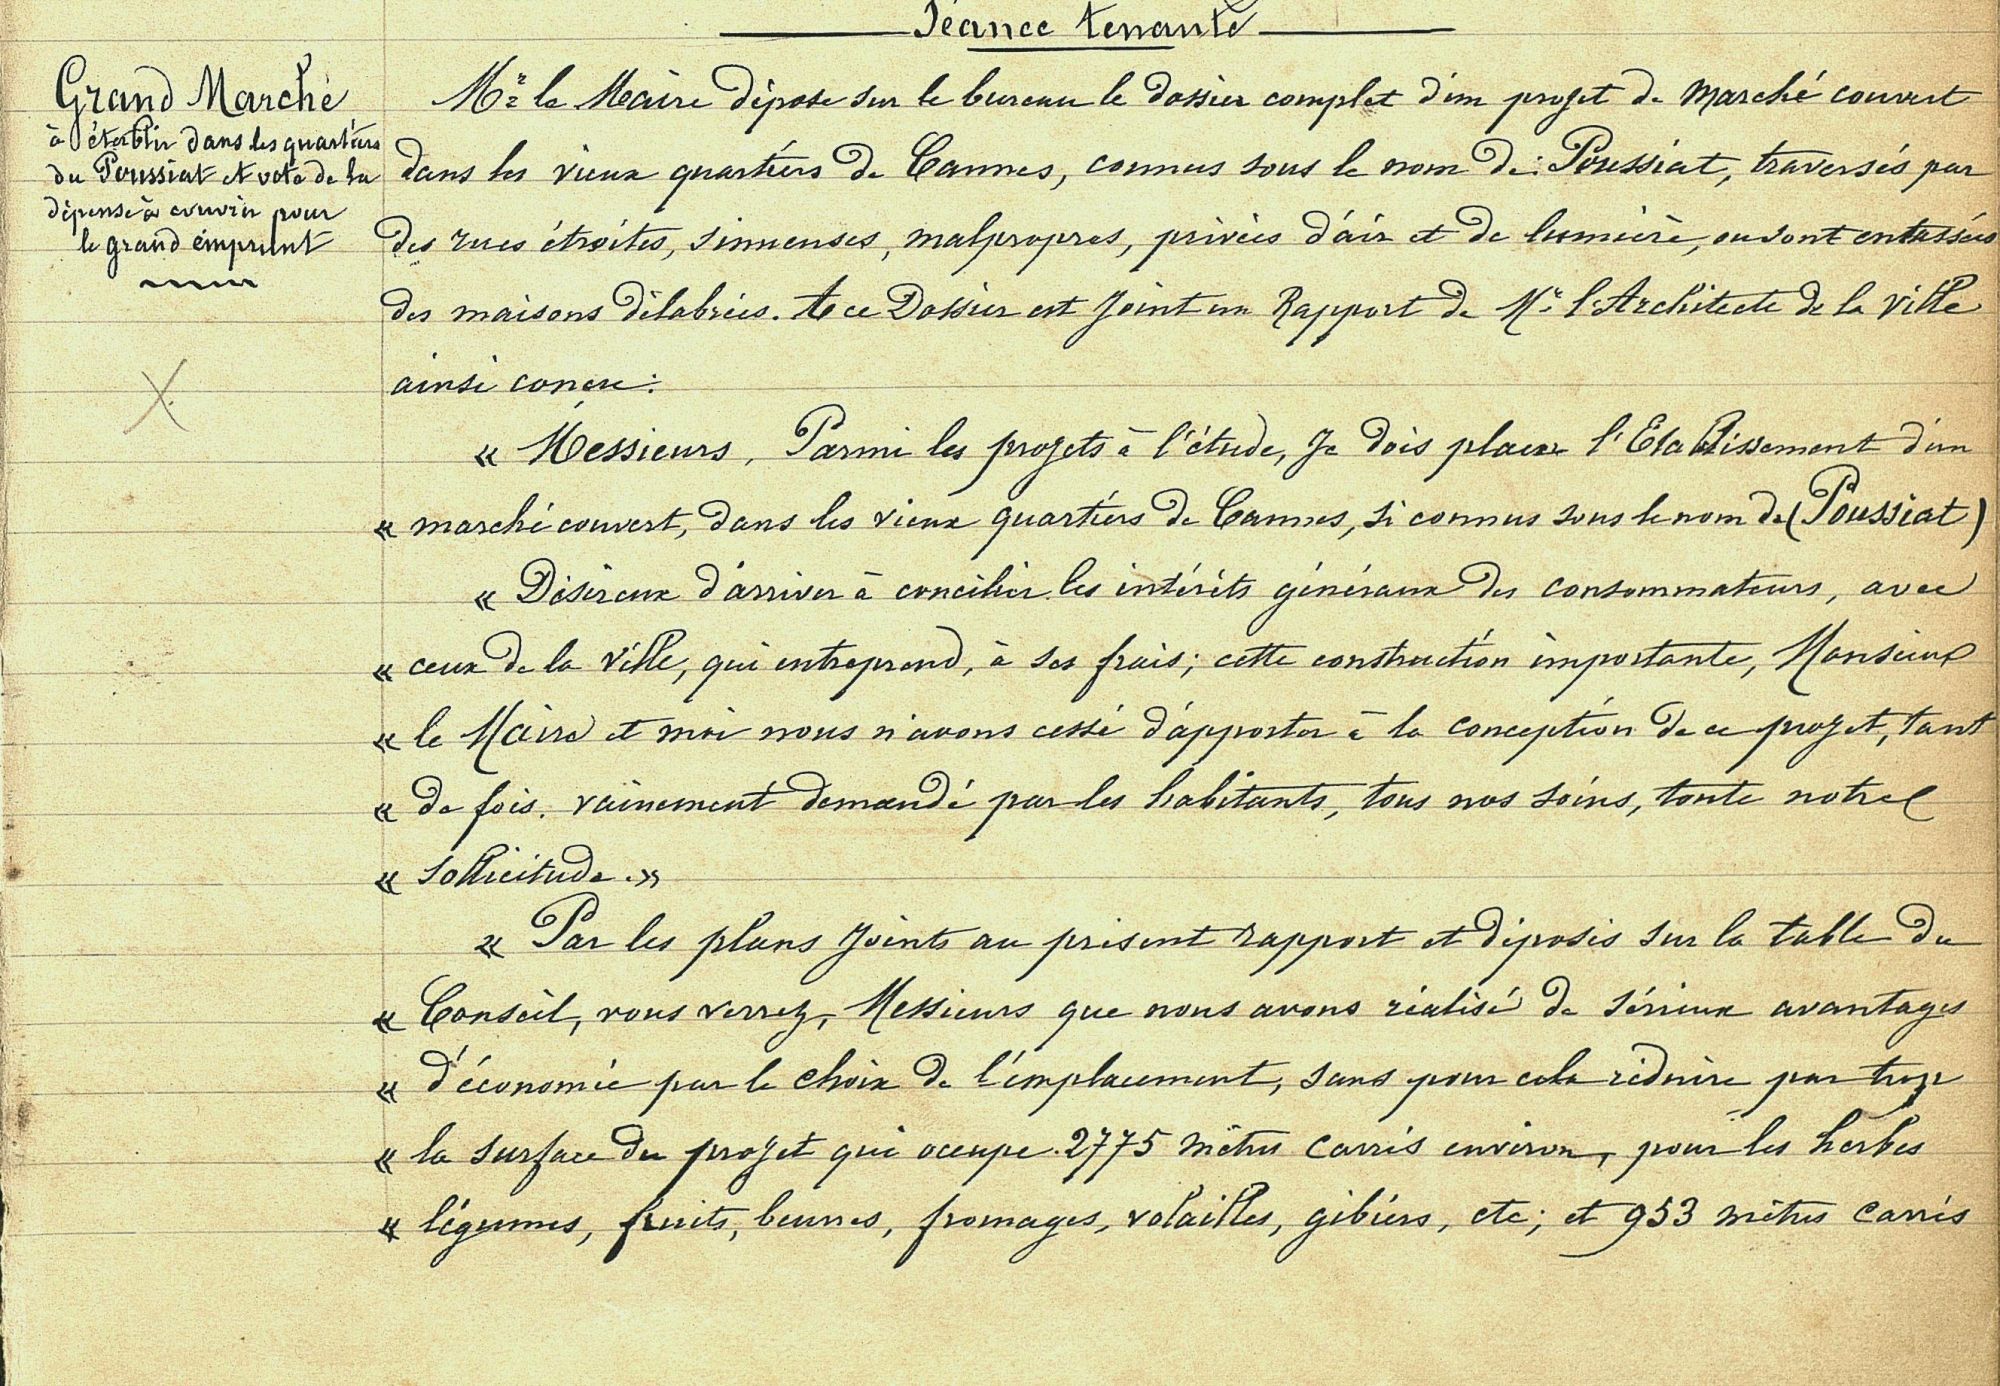 Séance tenante
Grand Marché
à établir dans les quartiers
du Poussiat et vote de la
dépense à couvrir pour
le grand emprunt
Mr le Maire dépose sur le bureau le dossier complet d'un projet de Marché couvert
dans les vieux quartiers de Cannes, connus sous le nom de: Poussiat, traversés par
des rues étroites, sinueuses, malpropres, privées d'air et de lumière, ou sont entassées
des maisons délabrées. A ce Dossier est joint un Rapport de Mr l'Architecte de la ville
ainsi conçu:
« Messieurs, Parmi les projets à l'étude, Je dois placer l'Etablissement d'un
« marché couvert, dans les vieux quartiers de Cannes, si connus sous le nom de (Poussiat)
« Désireux d'arriver à concilier les intérêts généraux des consommateurs, avec
« ceux de la ville, qui entreprend, à ses frais; cette construction importante, Monsieur
« le Maire et moi nous n'avons cessé d'apporter à la conception de ce projet, tant
« de fois vainement demandé par les habitants, tous nos soins, toute notre
« sollicitude.»
« Par les plans joints au présent rapport et déposés sur la table du
« Conseil, vous verrez, Messieurs que nous avons réalisé de sérieux avantages
« d'économie par le choix de l'emplacement, sans pour cela réduire par trop
« la surface du projet qui occupe 2775 mètres carrés environ, pour les herbes
« légumes, fruits, beurres, fromages, volailles, gibiers, etc; et 953 mètres carrés